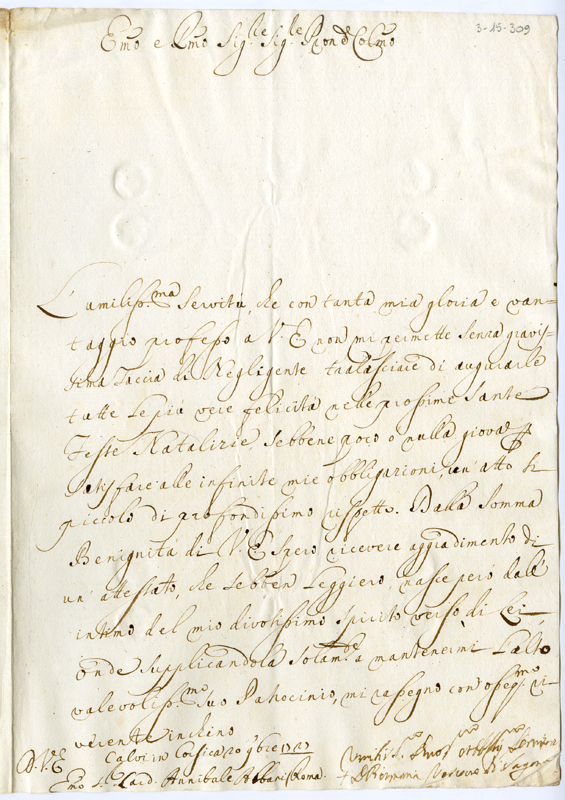 3-15-309
Emo e Rmo Sig.re Sig.re Pron Colmo
L'umiliss.ma servitù, che con tanta mia gloria e van=
taggio professo a V. E. non mi permette senza gravis=
sima taccia di Negligente tralasciare di augurarle
tutte le più vere felicità nelle prossime Sante
Feste Natalizie, sebbene poco o nulla giova p
satisfare alle infinite mie obbligazioni, un'atto si
piccolo di profondissimo rispetto. Dalla somma
Benignità di V. E. spero ricevere aggradimento di
un'attestato, che sebben leggiero, nasce però dall'
intimo del mio divotissimo spirito verso di Lei,
onde supplicandola solam.e a mantenermi l'alto
valevoliss.mo suo Patrocinio, mi rassegno con osseq.mo ri=
verente inchino
D. V. E. Calvi in Corsica 20 9bre 1727
Emo Sr. Card. Annibale Albani Roma. Vescovo di Sagona